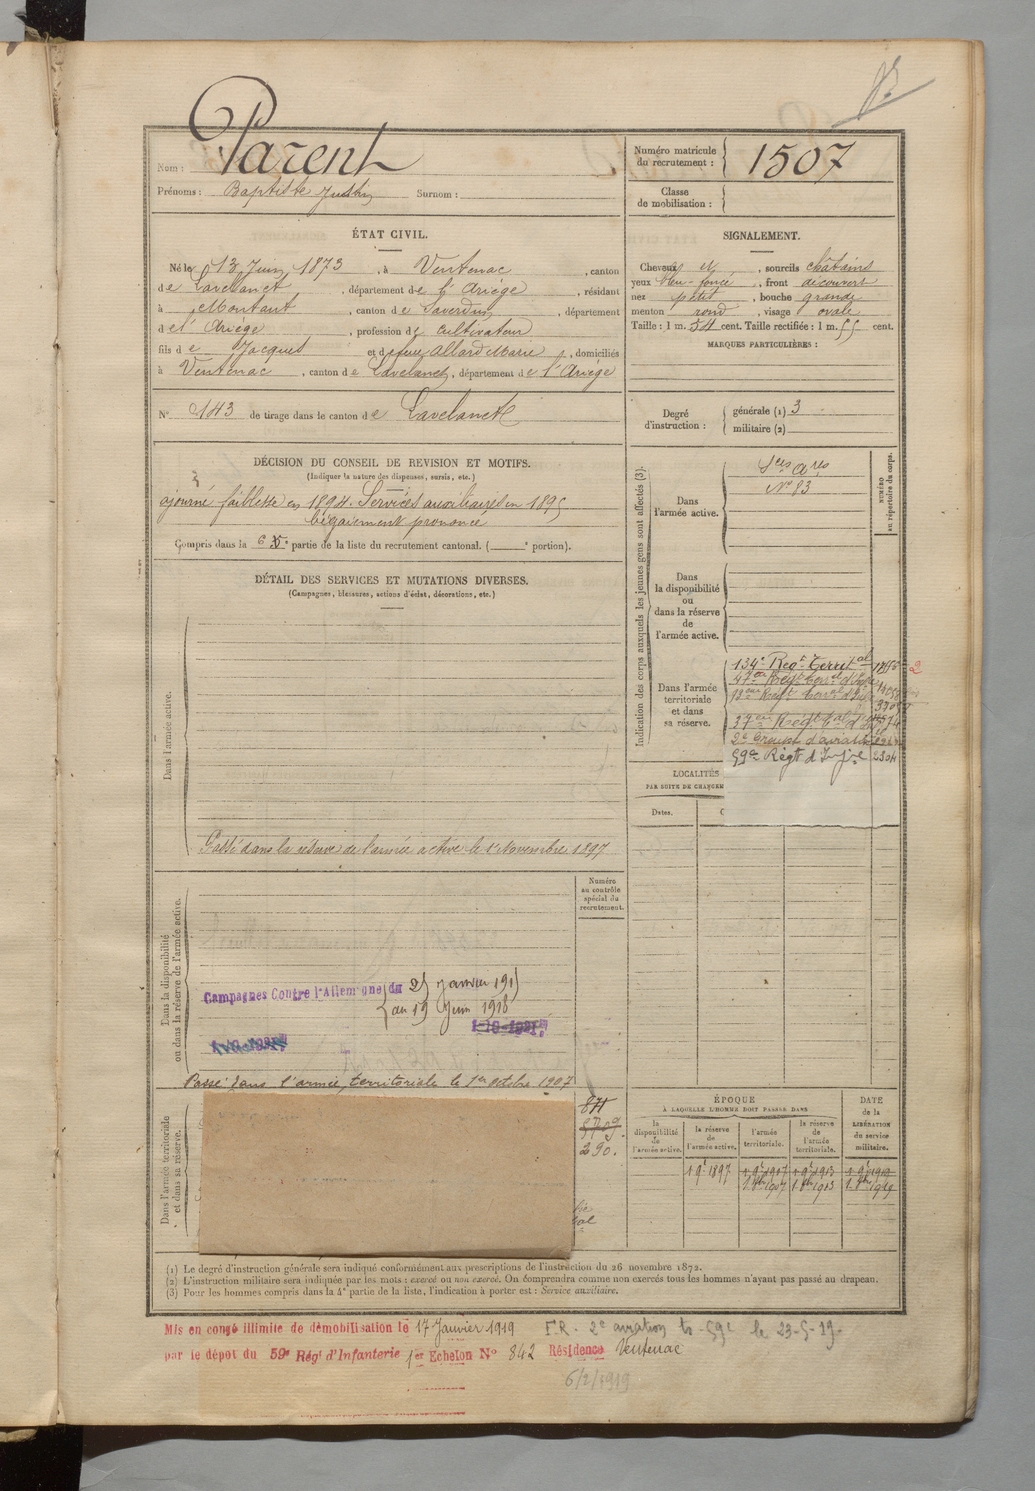 Nom : Parent
Prénoms : Baptiste Justin Surnom :
Numéro matricule du recrutement : 1507
Classe de mobilisation :
ÉTAT CIVIL.
Né le 13 Juin 1873, à Ventenac, canton
de Lavelanet, département de l'Ariège, résidant
à Montaut, canton de Saverdun, département
de l'Ariège, profession de cultivateur
fils de Jacques et de feue Allard Marie, domiciliés
à Ventenac, canton de Lavelanet, département de l'Ariège
N° 143 de tirage dans le canton de Lavelanet
SIGNALEMENT.
Cheveux et, sourcils châtains
yeux bleu-foncé, front découvert
nez petit, bouche grande
menton rond, visage ovale
Taille : 1 m. 54 cent. Taille rectifiée : 1 m. 55 cent.
MARQUES PARTICULIÈRES :
Degré d'instruction : générale (1) 3
militaire (2)
DÉCISION DU CONSEIL DE REVISION ET MOTIFS.
(Indiquer la nature des dispenses, sursis, etc.)
ajourné faiblesse en 1894. Services auxiliaires en 1895
bégaiement prononcé
Compris dans la 6e partie de la liste du recrutement cantonal. ( e portion).
DÉTAIL DES SERVICES ET MUTATIONS DIVERSES.
(Campagnes, blessures, actions d'éclat, décorations, etc.)
Dans l'armée active.
Passé dans la réserve de l'armée active le 1er Novembre 1897
Indication des corps auxquels les jeunes gens sont affectés (3).
NUMÉRO au répertoire du corps.
Dans l'armée active.
Sces Ares
N° 83
Dans la disponibilité ou dans la réserve de l'armée active.
Dans l'armée territoriale et dans sa réserve.
134e Regt Territal
2e Groupe d'aviation
59e Régt d'Infie 2304
LOCALITÉS
PAR SUITE DE CHANGEM
Dates.
Dans la disponibilité ou dans la réserve de l'armée active.
Numéro au contrôle spécial du recrutement.
Campagnes Contre l'Allemagne du 25 janvier 1915
au 19 Juin 1918
1-10-1921
Passé dans l'armée territoriale le 1er octobre 1907
Dans l'armée territoriale et dans sa réserve.
871
5709.
290.
ÉPOQUE
À LAQUELLE L'HOMME DOIT PASSER DANS
la disponibilité de l'armée active.
la réserve de l'armée active.
l'armée territoriale.
la réserve de l'armée territoriale.
DATE de la LIBÉRATION du service militaire.
1 9e 1897 1 9e 1907 1 9e 1913 1 9e 1919
1 8bre 1907 1 8bre 1913 1 8bre 1919
(1) Le degré d'instruction générale sera indiqué conformément aux prescriptions de l'instruction du 26 novembre 1872.
(2) L'instruction militaire sera indiquée par les mots : exercé ou non exercé. On comprendra comme non exercés tous les hommes n'ayant pas passé au drapeau.
(3) Pour les hommes compris dans la 4e partie de la liste, l'indication à porter est : Service auxiliaire.
Mis en congé illimité de démobilisation le 17 Janvier 1919 F.R. 2e aviation to 59e le 23-5-19.
par le dépôt du 59e Régt d'Infanterie 1er Echelon N° 842 Résidence Ventenac
6/2/1919